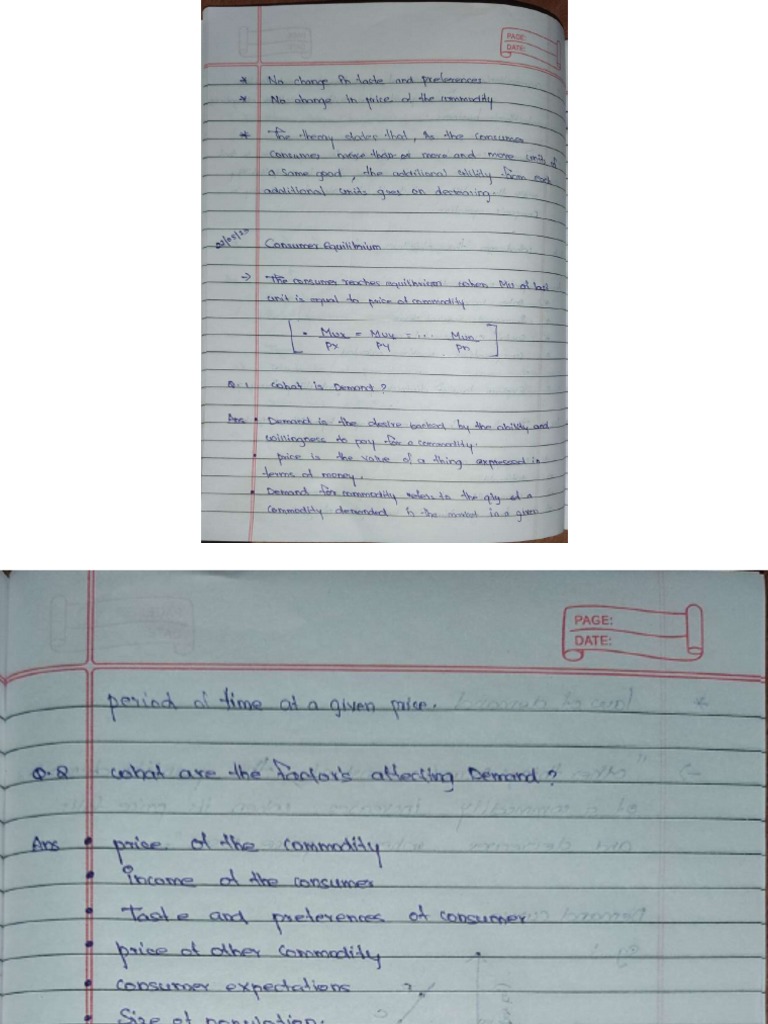 PAGE:
DATE:
* No change in taste and preferences
* No change in price of the commodity
* The theory states that, As the consumer
consumes more than or more and more units of
a same good, the additional utility from each
additional units goes on decreasing.
Consumer Equilibrium
→ The consumer reaches equilibrium when MU of last
unit is equal to price of commodity
[ • Mux/Px = Muy/Py = ... Mun/Pn ]
Q.1 What is Demand?
Ans • Demand is the desire backed by the ability and
willingness to pay for a commodity.
• price is the value of a thing expressed in
terms of money.
• Demand for commodity refers to the qty of a
commodity demanded in the market in a given
PAGE:
DATE:
period of time at a given price.
Q.2 What are the factor's affecting Demand?
Ans • price of the commodity
• Income of the consumer
• Taste and preferences of consumer
• price of other commodity
• consumer expectations
• Size of population.